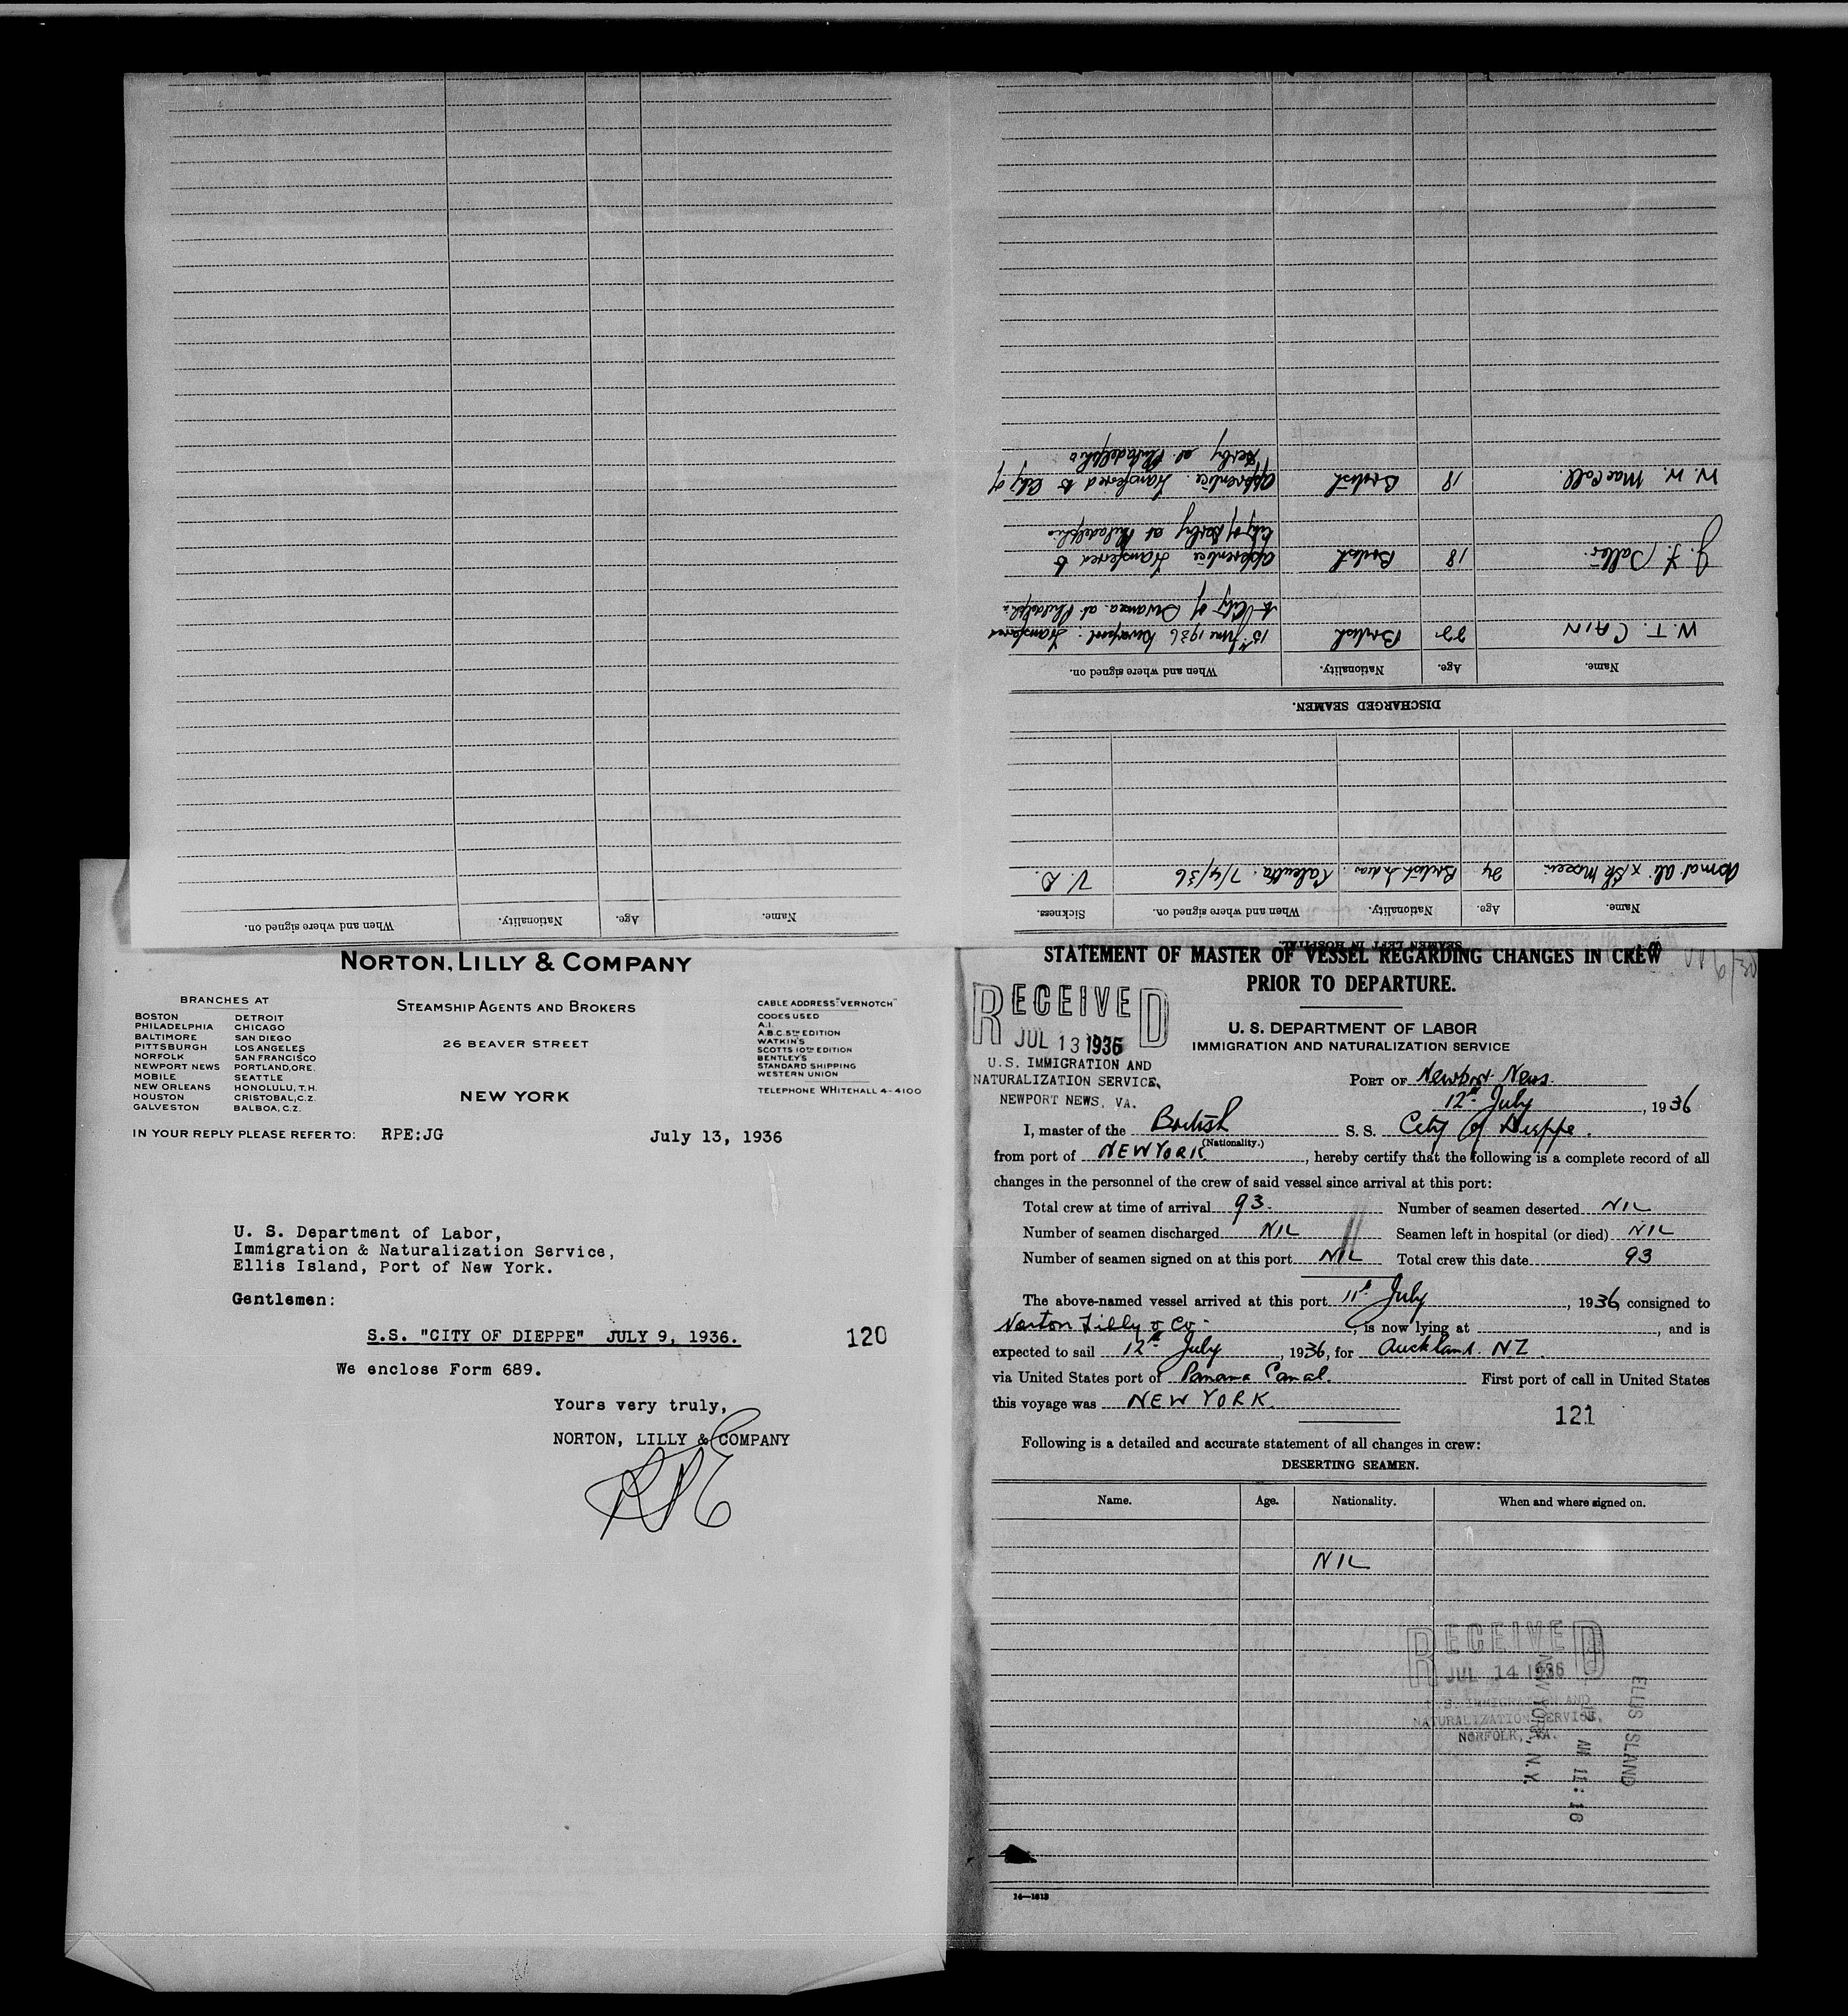 When and where signed on.
Nationality.
Age.
Name.
SEAMEN LEFT IN HOSPITAL.
Name. Age. Nationality. When and where signed on. Sickness.
24 British Indian. Calcutta. 7/4/36 V.D.
DISCHARGED SEAMEN.
Name. Age. Nationality. When and where signed on.
W. T. CAIN 22 British 15th June 1936 Liverpool. Transferred
to City of Swansea at Philadelphia
J. F. 18 British Apprentice Transferred to
City of Derby at Philadelphia
W. W. MacColl. 18 British Apprentice. Transferred to City of
Derby at Philadelphia
NORTON, LILLY & COMPANY
STEAMSHIP AGENTS AND BROKERS
26 BEAVER STREET
NEW YORK
BRANCHES AT
BOSTON DETROIT
PHILADELPHIA CHICAGO
BALTIMORE SAN DIEGO
PITTSBURGH LOS ANGELES
NORFOLK SAN FRANCISCO
NEWPORT NEWS PORTLAND, ORE.
MOBILE SEATTLE
NEW ORLEANS HONOLULU, T.H.
HOUSTON CRISTOBAL, C.Z.
GALVESTON BALBOA, C.Z.
CABLE ADDRESS: "VERNOTCH"
CODES USED
A.I.
A.B.C. 5TH EDITION
WATKIN'S
SCOTTS 10TH EDITION
BENTLEY'S
STANDARD SHIPPING
WESTERN UNION
TELEPHONE WHITEHALL 4-4100
IN YOUR REPLY PLEASE REFER TO: RPE:JG July 13, 1936
U. S. Department of Labor,
Immigration & Naturalization Service,
Ellis Island, Port of New York.
Gentlemen:
S.S. "CITY OF DIEPPE" JULY 9, 1936. 120
We enclose Form 689.
Yours very truly,
NORTON, LILLY & COMPANY
RPE
STATEMENT OF MASTER OF VESSEL REGARDING CHANGES IN CREW
PRIOR TO DEPARTURE.
U. S. DEPARTMENT OF LABOR
IMMIGRATION AND NATURALIZATION SERVICE
RECEIVED
JUL 13 1936
U.S. IMMIGRATION AND
NATURALIZATION SERVICE,
NEWPORT NEWS, VA.
PORT OF Newport News.
12th July, 1936
I, master of the British S. S. City of Dieppe.
(Nationality.)
from port of NEW YORK, hereby certify that the following is a complete record of all
changes in the personnel of the crew of said vessel since arrival at this port:
Total crew at time of arrival 93. Number of seamen deserted NIL
Number of seamen discharged NIL Seamen left in hospital (or died) NIL
Number of seamen signed on at this port NIL Total crew this date 93
The above-named vessel arrived at this port 11th July, 1936, consigned to
Norton Lilly & Co., is now lying at , and is
expected to sail 12th July, 1936, for Auckland. NZ.
via United States port of Panama Canal. First port of call in United States
this voyage was NEW YORK.
121
Following is a detailed and accurate statement of all changes in crew:
DESERTING SEAMEN.
Name. Age. Nationality. When and where signed on.
NIL
RECEIVED
JUL 14 1936
U.S. IMMIGRATION AND
NATURALIZATION SERVICE,
NORFOLK, VA.
ELLIS ISLAND
AM 11:16
NEW YORK, N.Y.
14—1613